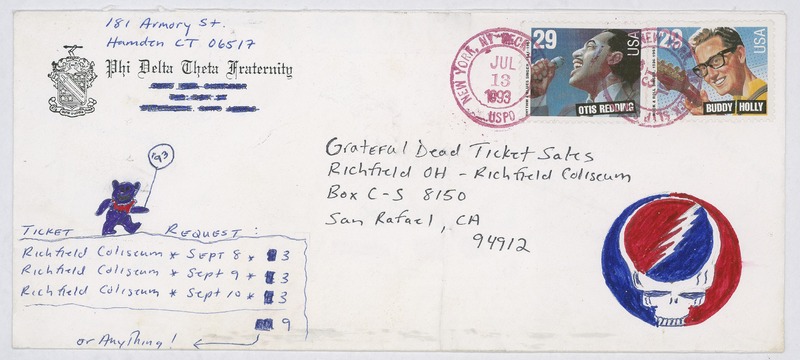 181 Armory St.
Hamden CT 06517
Phi Delta Theta Fraternity
NEW YORK, NY
JUL
13
1993
USPO
29
USA
OTIS REDDING
29
USA
BUDDY HOLLY
Grateful Dead Ticket Sales
Richfield OH - Richfield Coliseum
Box C-S 8150
San Rafael, CA
94912
'93
Ticket Request:
Richfield Coliseum * Sept 8 * 3
Richfield Coliseum * Sept 9 * 3
Richfield Coliseum * Sept 10 * 3
9
or Anything!